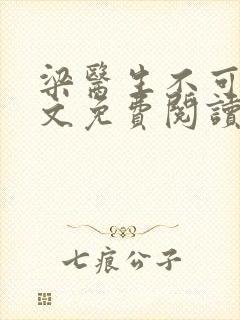 梁醫生不可
文免費閱讀
七痕公子